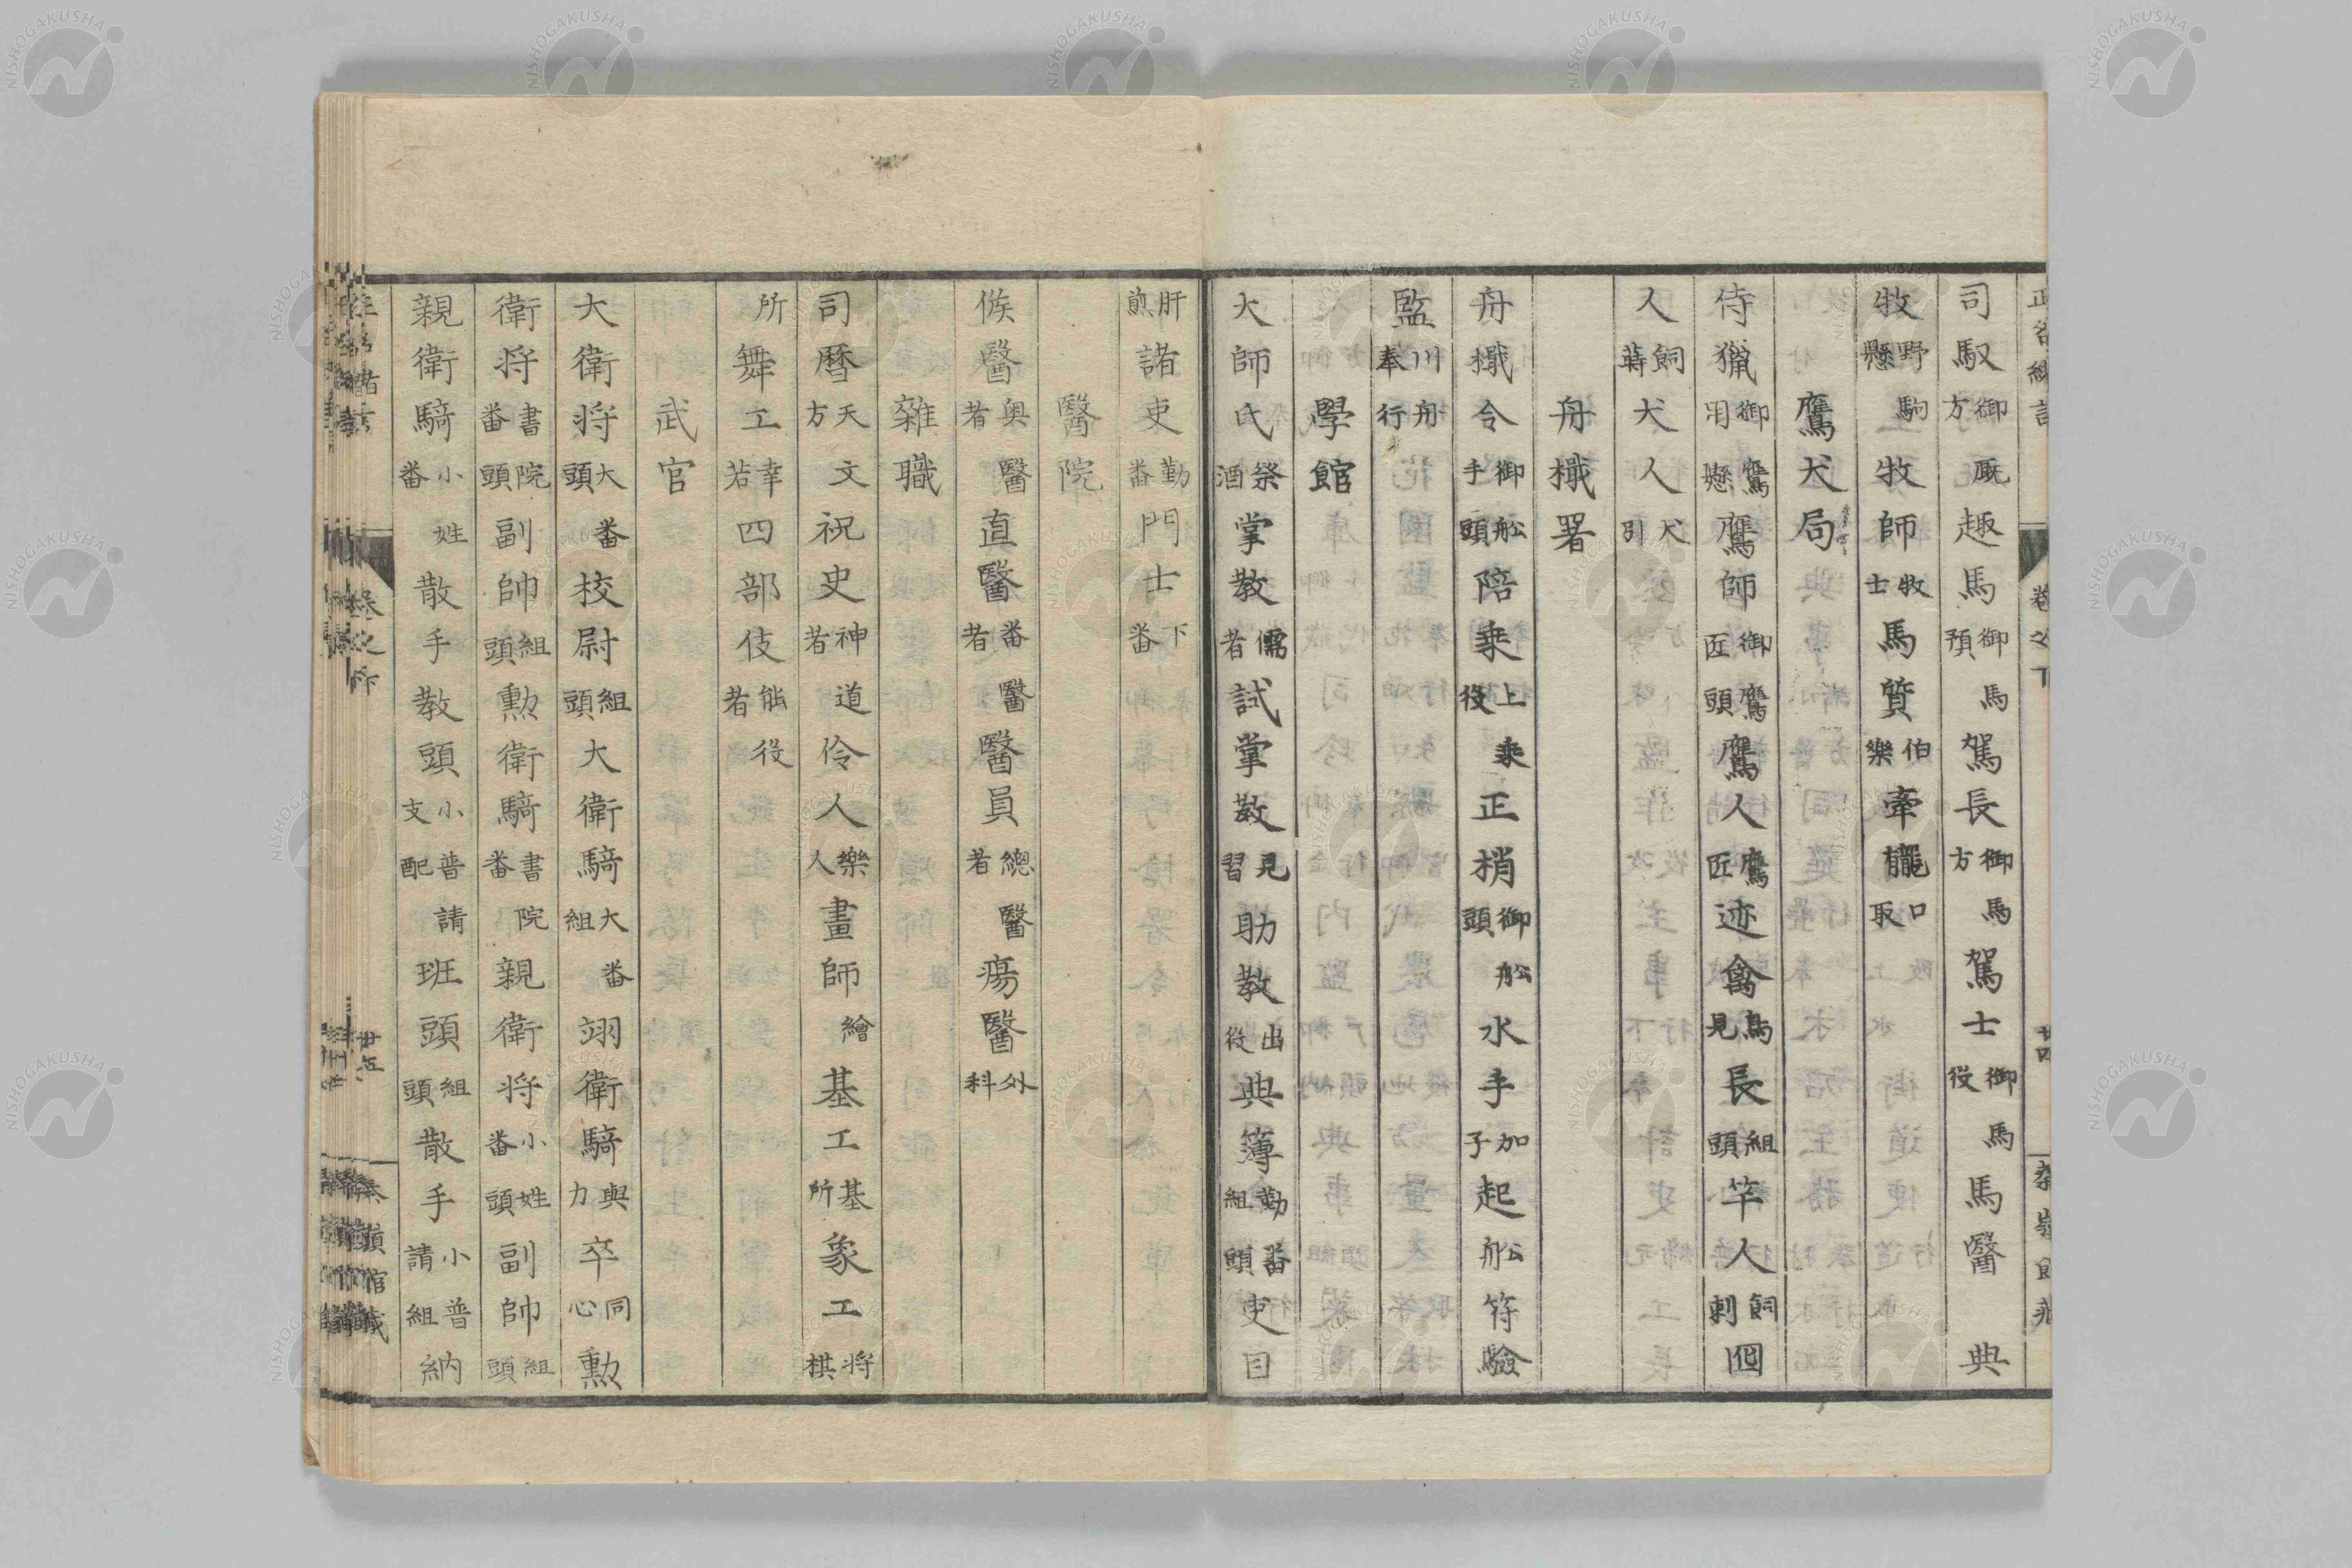 司馭御厩方趣馬御馬預駕長御馬方駕士御馬役馬醫典
牧野駒懸牧師牧士馬質伯樂牽龓口取
鷹犬局
侍獵御鷹用懸鷹師御鷹匠頭鷹人鷹匠迹禽鳥見長組頭竿人飼刺
人飼蒔犬人犬引
舟檝署
舟檝令御舩手頭陪乗上乗役正梢御舩頭水手加子起舩符驗
監川舟奉行
學館
大師氏祭酒掌教儒者試掌教見習助教出役典簿勤番組頭吏目
肝煎諸吏勤番門士下番
醫院
候醫奥醫者直醫番醫者醫員總醫者瘍醫外科
雜職
司曆天文方祝史神道者伶人樂人畫師繪基工基所象工将棋
所舞工幸若四部伎能役者
武官
大衛将大番頭校尉組頭大衛騎大番組翊衛騎與力卒同心勲
衛将書院番頭副帥組頭勲衛騎書院番親衛将小姓番頭副帥組頭
親衛騎小姓番散手教頭小普請支配班頭組頭散手小普請組納
卷之下
廿五